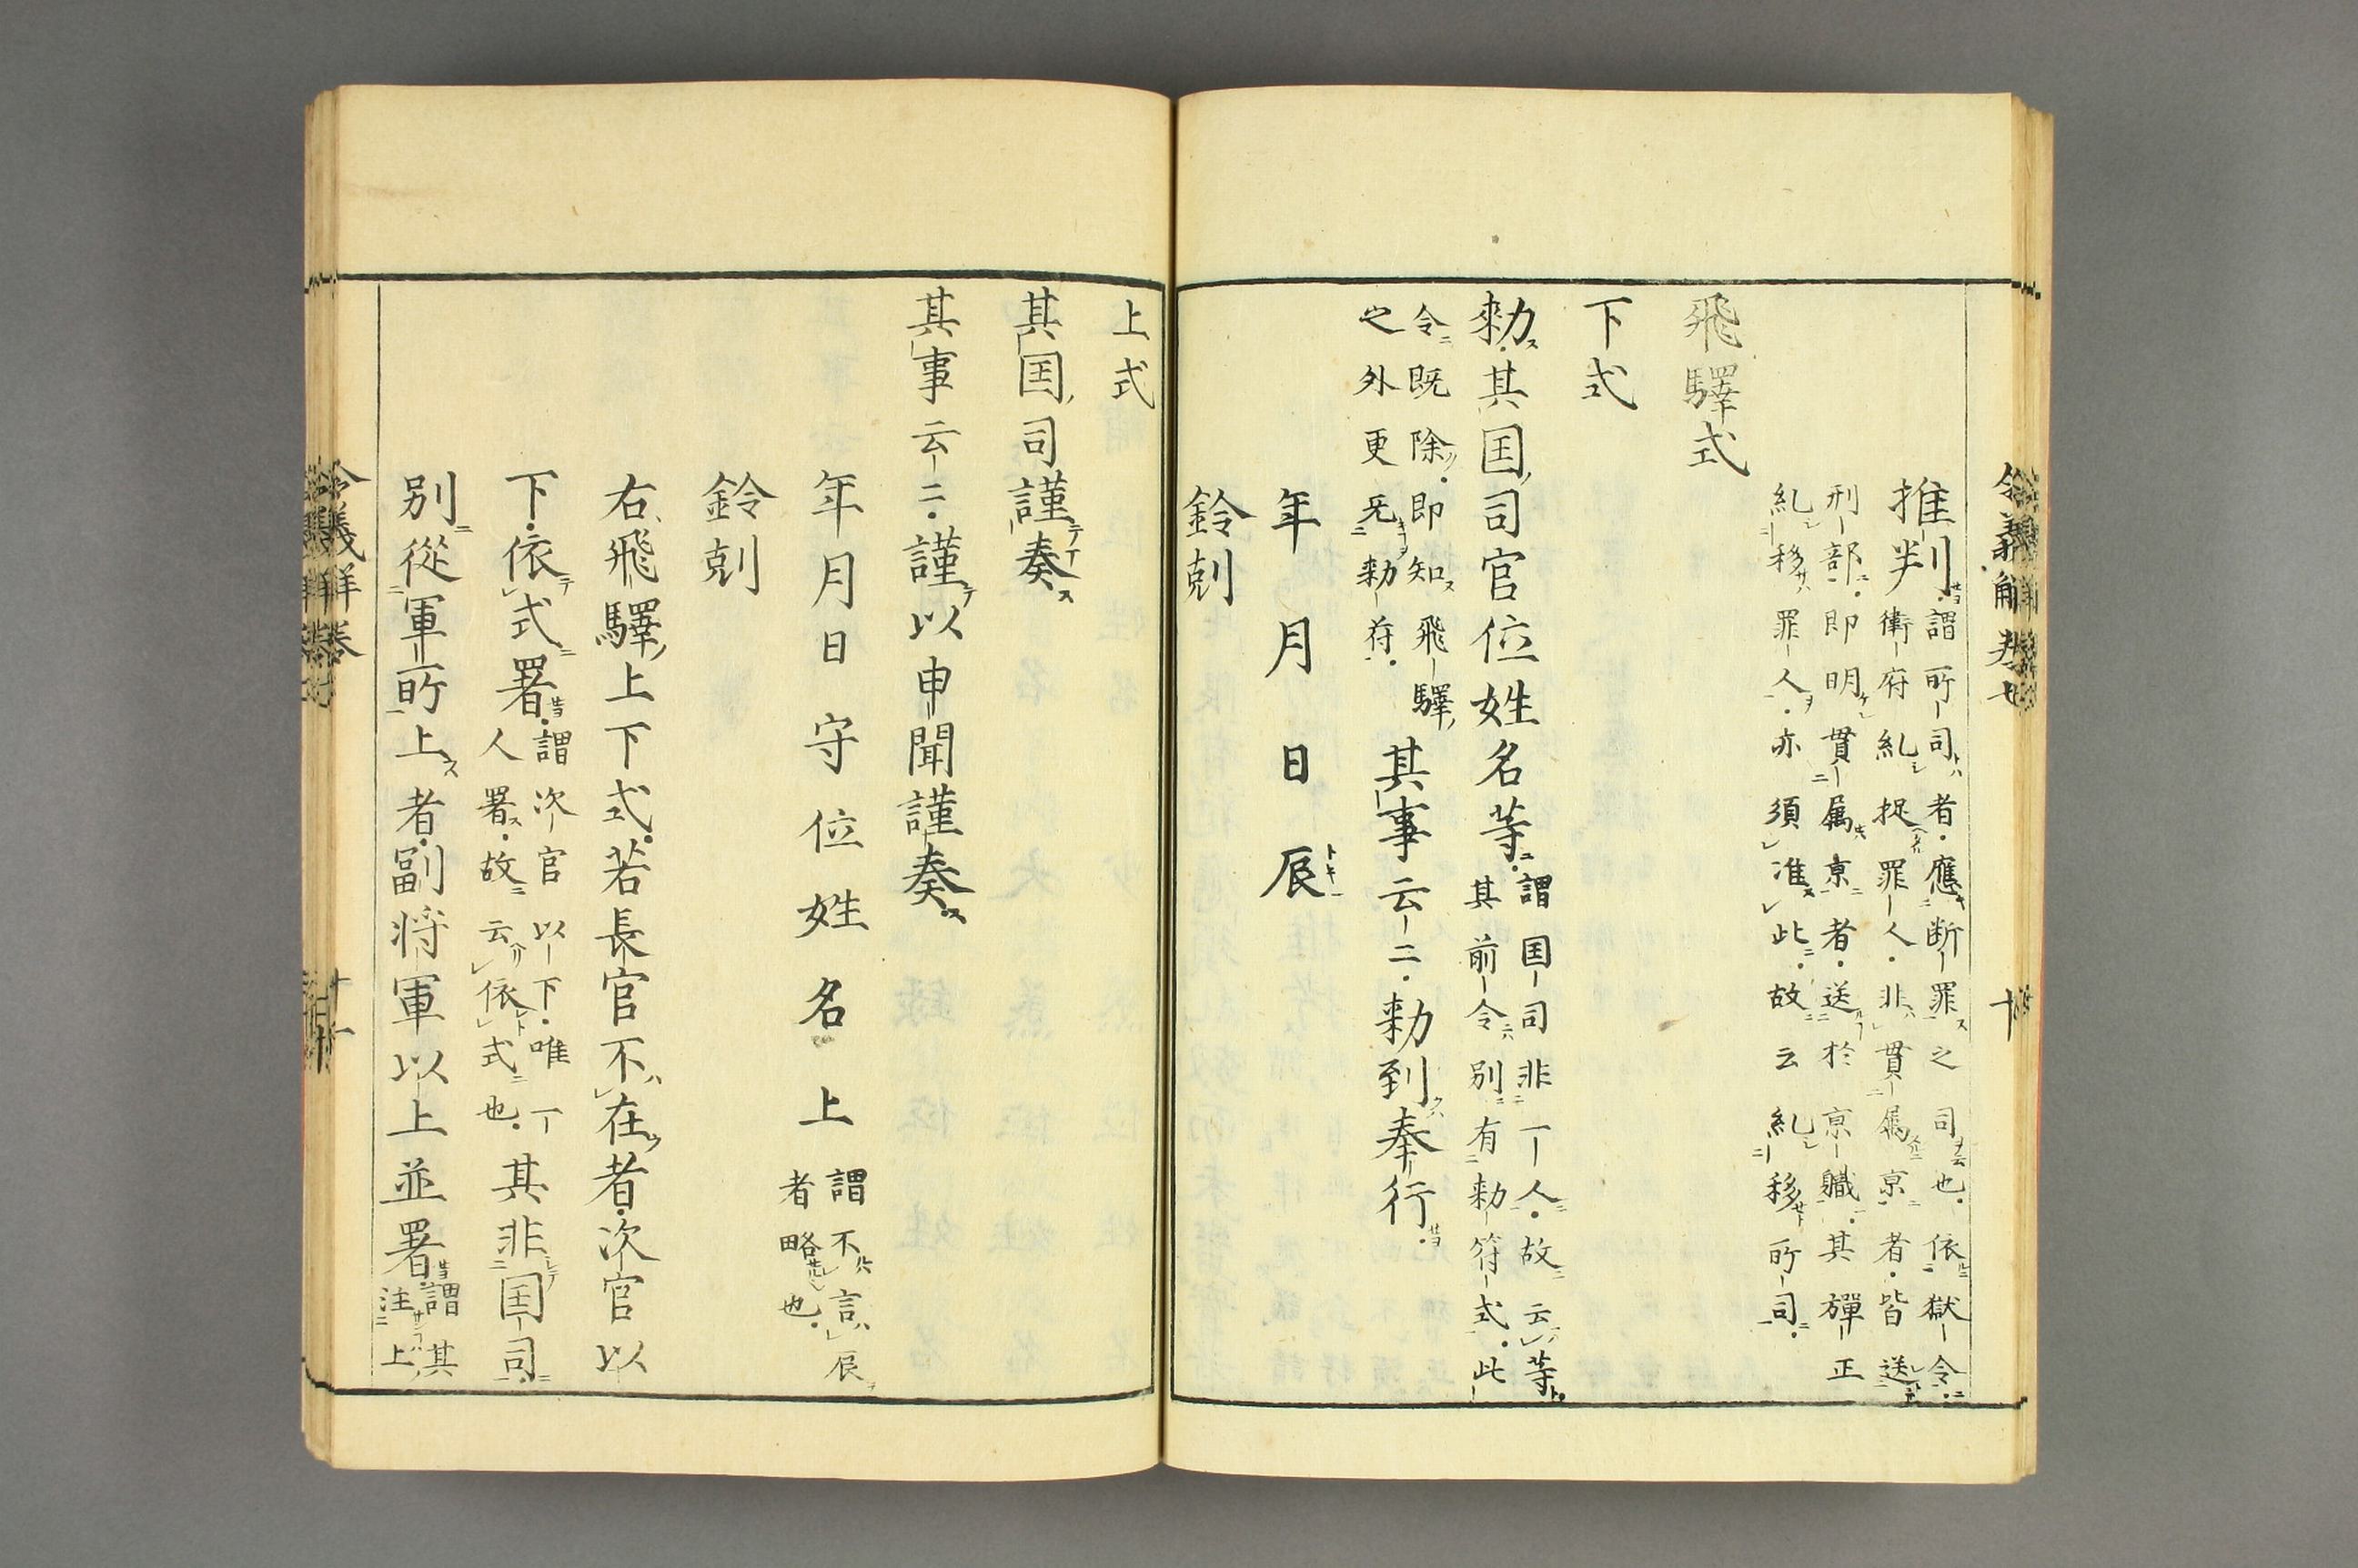 推判謂所司者應断罪之司也依獄令
衛府糺捉罪人非貫属京者皆送
刑部即明貫属京者送於京職其彈正
糺移罪人亦須准此故云糺移所司
飛驛式
下式
勅其国司官位姓名等謂国司非一人故云等
其前令別有勅符式此
令既除即知飛驛
之外更无勅符其事云二勅到奉行
年月日辰
鈴剋
上式
其国司謹奏
其事云二謹以申聞謹奏
年月日守位姓名上謂不言辰
者略也
鈴剋
右飛驛上下式若長官不在者次官以
下依式署謂次官以下唯一
人署故云依式也其非国司
別從軍所上者副将軍以上並署謂其
注上